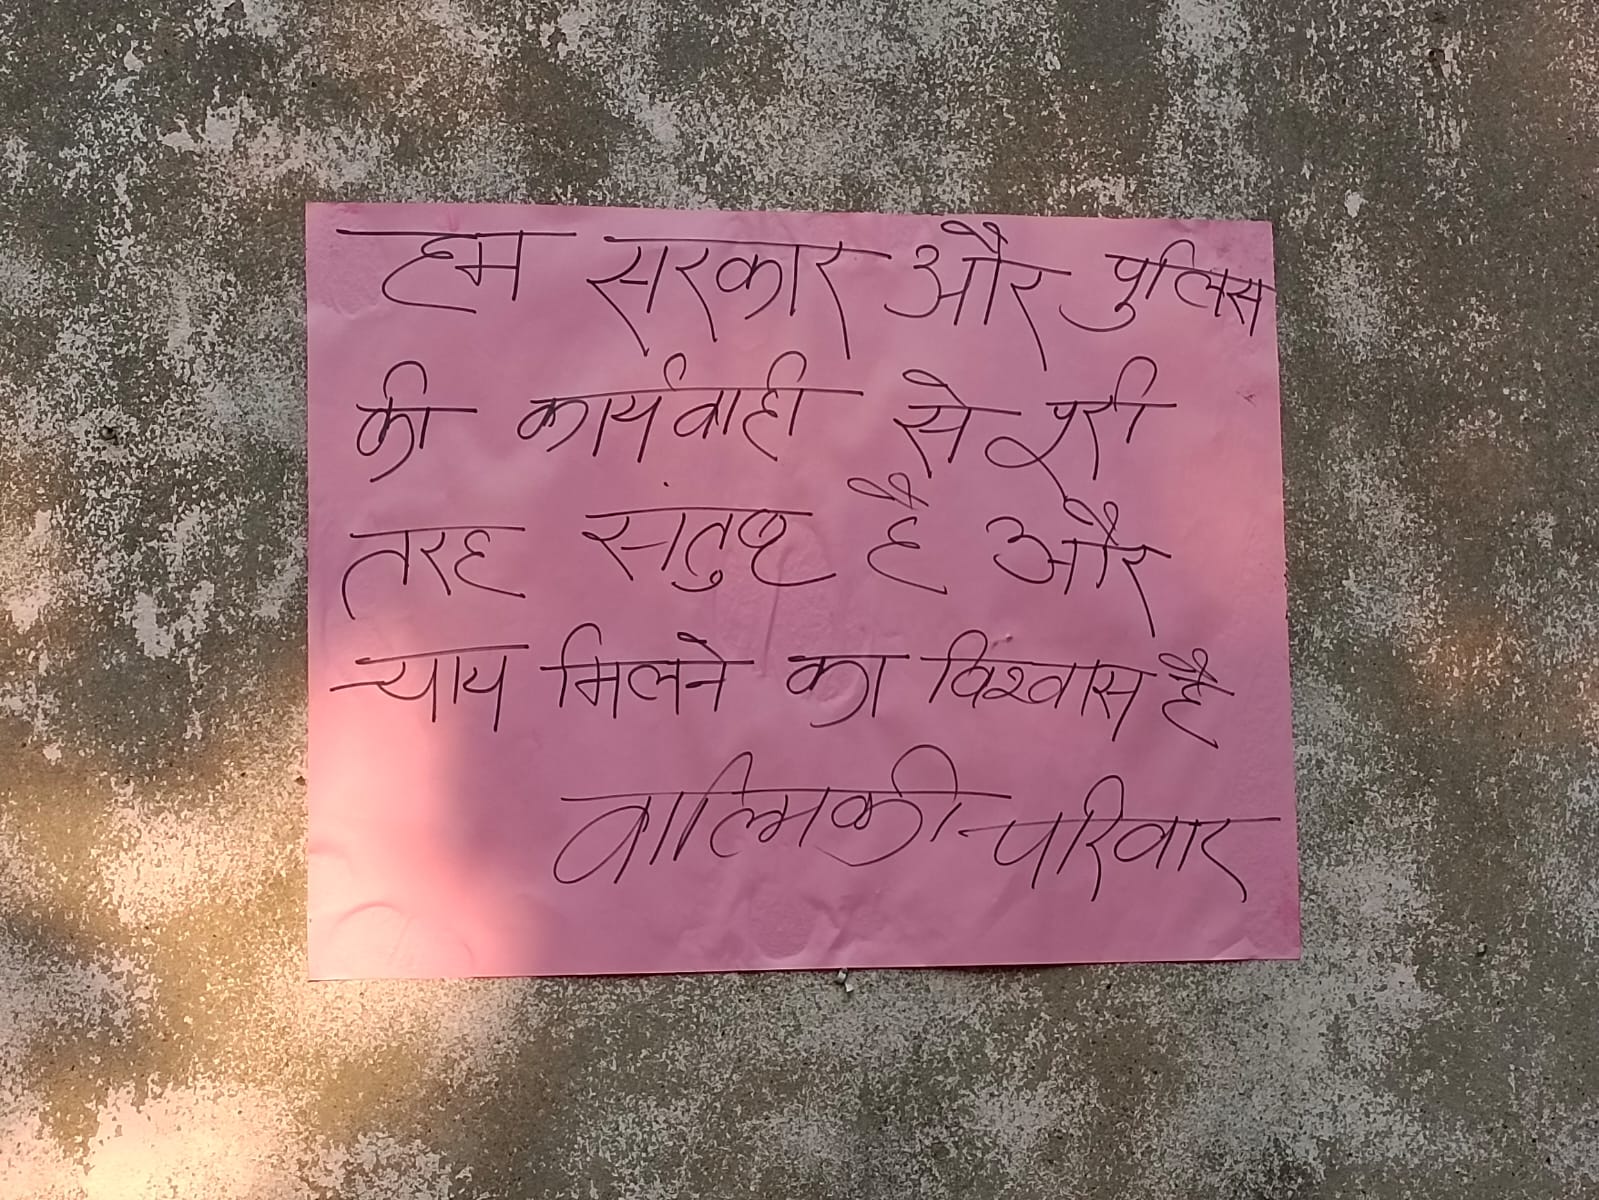 हम सरकार और पुलिस
की कार्यवाही से पूरी
तरह संतुष्ट है और
न्याय मिलने का विश्वास है
वाल्मिकी परिवार